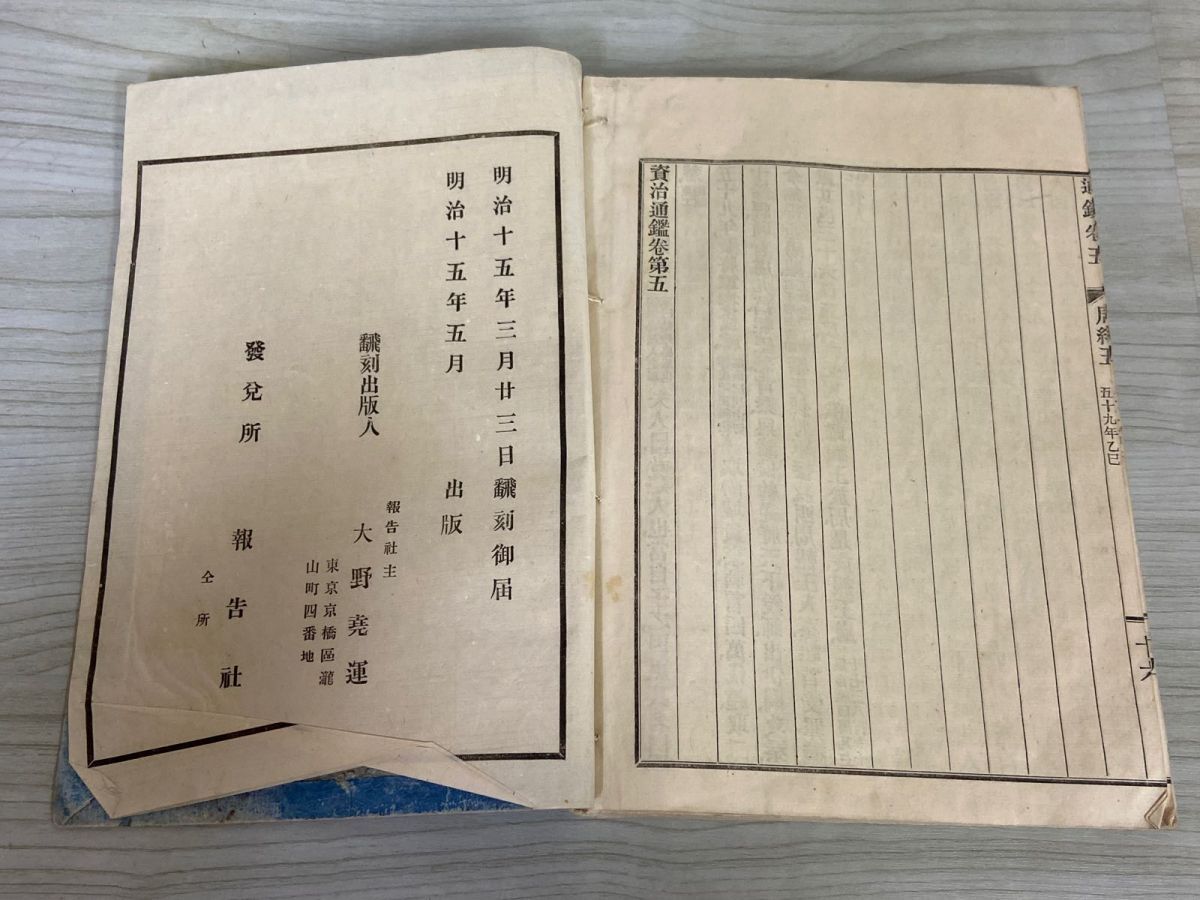 通鑑卷五
周紀五
五十九年乙巳
十六
資治通鑑卷第五
明治十五年三月廿三日飜刻御届
明治十五年五月 出版
飜刻出版人
報告社主
大野堯運
東京京橋區瀧
山町四番地
發兌所 報告社
仝所